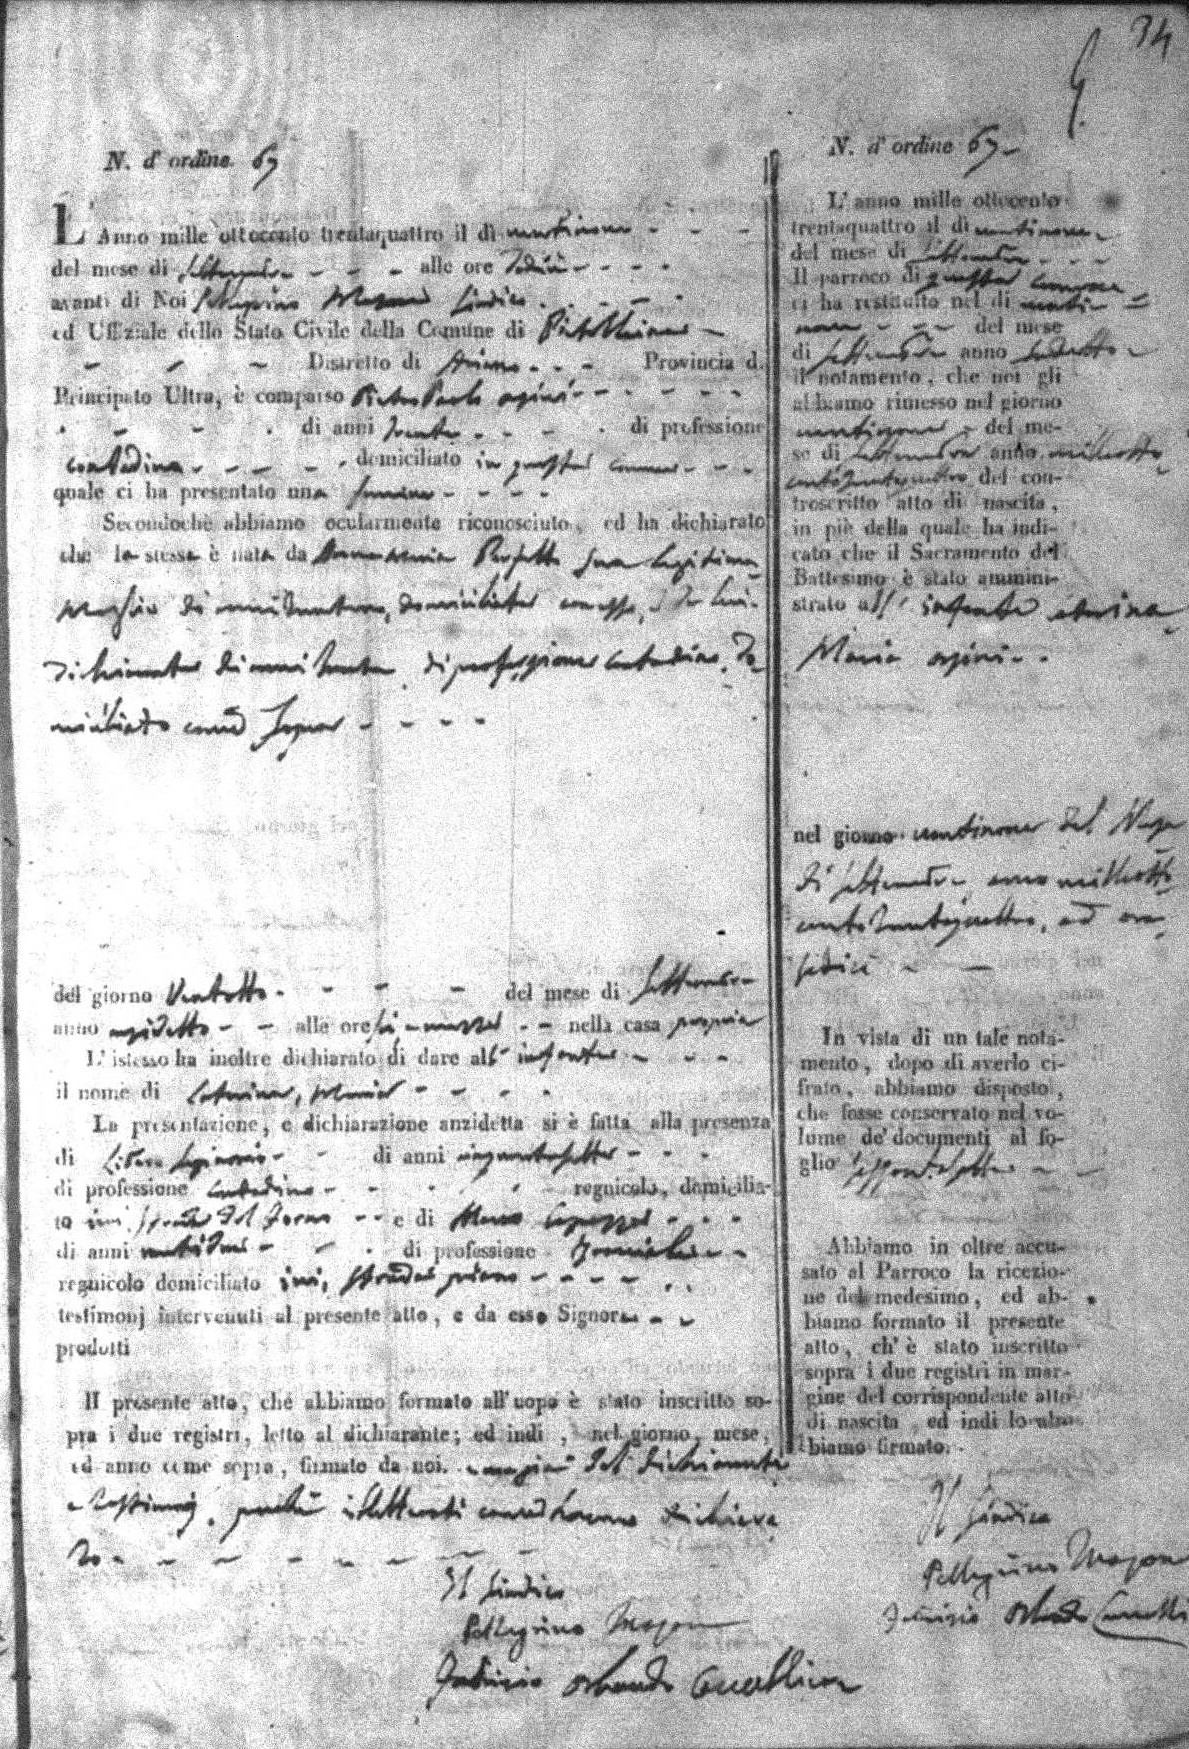 34
N. d' ordine 67
L' Anno mille ottocento trentaquattro il dì ventinove
del mese di Settembre alle ore sedici
avanti di Noi Pellegrino Giudice
ed Uffiziale dello Stato Civile della Comune di
Distretto di Ariano Provincia d.
Principato Ultra, è comparso Pietro Paolo
di anni trenta di professione
contadino domiciliato in questa comune
quale ci ha presentato una femina
Secondochè abbiamo ocularmente riconosciuto, ed ha dichiarato
che la stessa è nata da sua legitima
moglie di anni domiciliata con esso, e da lui
dichiarante di anni trenta di professione contadino, do
miciliato come sopra
del giorno Ventotto del mese di Settembre
anno alle ore nella casa propria
L' istesso ha inoltre dichiarato di dare all' infante
il nome di Caterina, Maria
La presentazione, e dichiarazione anzidetta si è fatta alla presenza
di di anni cinquantasette
di professione contadino regnicolo, domicilia-
to ivi, strada del Forno e di Marco
di anni di professione
regnicolo domiciliato ivi, strada piano
testimonj intervenuti al presente atto, e da esso Signor
prodotti
Il presente atto, che abbiamo formato all' uopo è stato inscritto so-
pra i due registri, letto al dichiarante; ed indi, nel giorno, mese,
ed anno come sopra, firmato da noi. del dichiarante
e testimonj, perchè illetterati come hanno dichiara
to
Il Giudice
Pellegrino
Orlando
N. d' ordine 67
L' anno mille ottocento
trentaquattro il dì ventinove
del mese di Settembre
Il parroco di questa comune
ci ha restituito nel dì venti =
nove del mese
di Settembre anno sudetto
il notamento, che noi gli
abbiamo rimesso nel giorno
ventinove del me-
se di Settembre anno milleotto
centotrentaquattro del con-
troscritto atto di nascita,
in piè della quale ha indi-
cato che il Sacramento del
Battesimo è stato ammini-
strato all' infante
Maria
nel giorno ventinove del Mese
di Settembre anno milleotto
centotrentaquattro, ad ore
sedici
In vista di un tale nota-
mento, dopo di averlo ci-
frato, abbiamo disposto,
che fosse conservato nel vo-
lume de' documenti al fo-
glio sessantasette
Abbiamo in oltre accu-
sato al Parroco la ricezio-
ne del medesimo, ed ab-
biamo formato il presente
atto, ch' è stato inscritto
sopra i due registri in mar-
gine del corrispondente atto
di nascita, ed indi lo ab-
biamo firmato.
Il Giudice
Pellegrino
Orlando